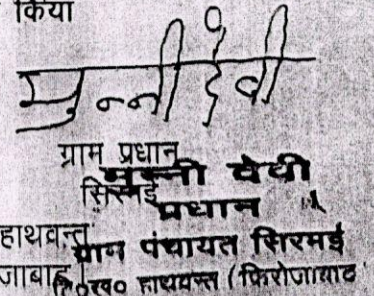 किया
मुन्नी देवी
ग्राम प्रधान
मुन्नी देवी
सिरमई
प्रधान
हाथवन्त
ग्राम पंचायत सिरमई
वि०ख० हाथवन्त (फिरोजाबाद